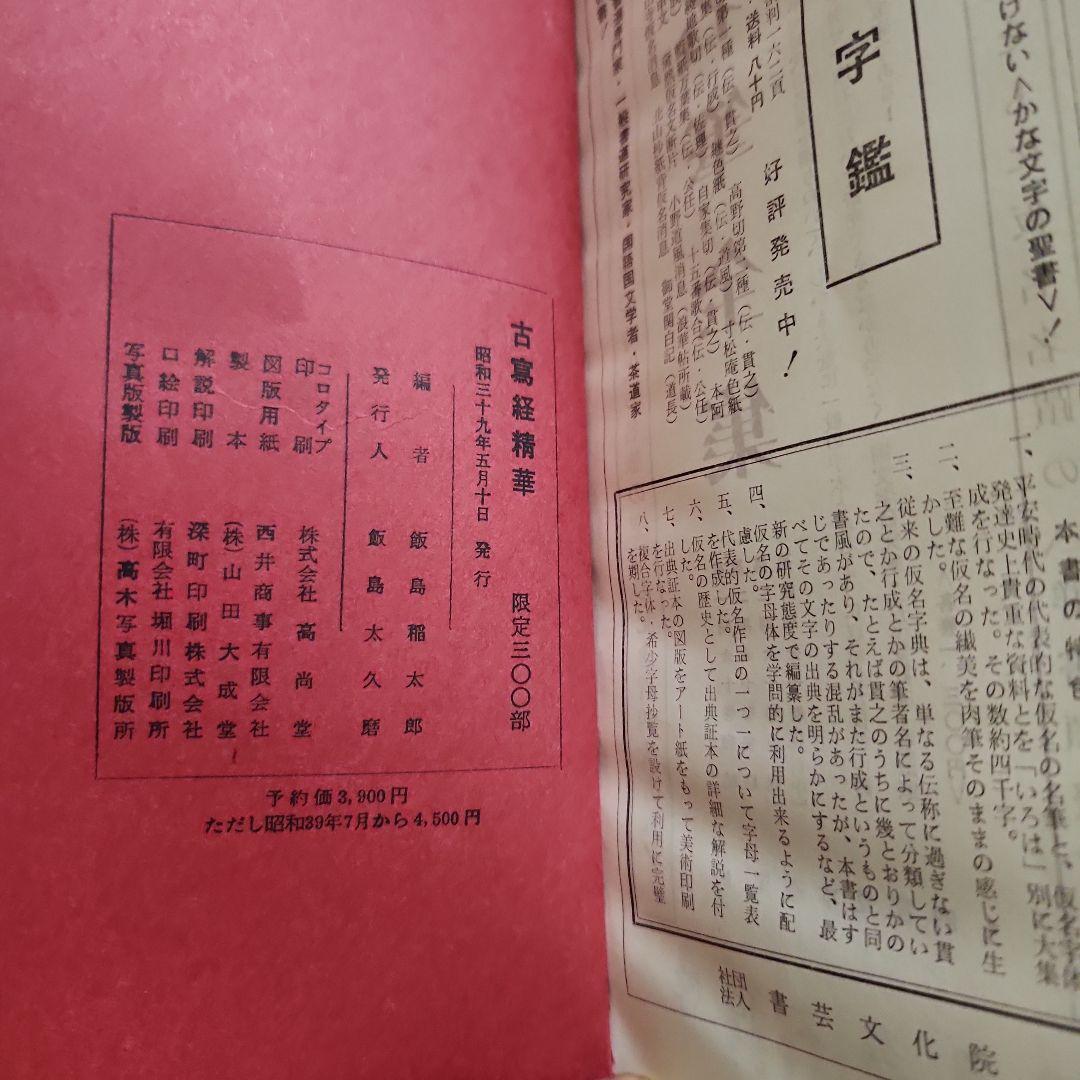 けない〈かな文字の聖書〉！
字鑑
判一六二頁
送料 八十円 好評発売中！
種（伝・貫之） 高野切第二種（伝・貫之）
（伝・行成） 継色紙（伝・道風） 寸松庵色紙
切（伝・佐理） 自家集切（伝・貫之） 本阿
集（伝・公任） 十五番歌合（伝・公任）
小野道風消息（浪華帖所載）
北山抄紙背仮名消息 御堂関白記（道長）
・一般書道研究家・国語国文学者・茶道家
本書の特色
一、平安時代の代表的な仮名の名筆と、仮名字体
発達史上貴重な資料とを「いろは」別に大集
成を行なった。その数約四千字。
二、至難な仮名の繊美を肉筆そのままの感じに生
かした。
三、従来の仮名字典は、単なる伝称に過ぎない貫
之とか行成とかの筆者名によって分類してい
たので、たとえば貫之のうちに幾とおりかの
書風があり、それがまた行成というものと同
じであったりする混乱があったが、本書はす
べてその文字の出典を明らかにするなど、最
新の研究態度で編纂した。
四、仮名の字母体を学問的に利用出来るように配
慮した。
五、代表的仮名作品の一つ一について字母一覧表
を作成した。
六、仮名の歴史として出典証本の詳細な解説を付
した。
七、出典証本の図版をアート紙をもって美術印刷
を行なった。
八、複合字体・希少字母抄覧を設けて利用に完璧
を期した。
社団法人 書芸文化院
古寫経精華 限定三〇〇部
昭和三十九年五月十日 発行
編者 飯島稲太郎
発行人 飯島太久磨
コロタイプ印刷 株式会社 高尚堂
図版用紙 西井商事有限会社
製本 (株)山田大成堂
解説印刷 深町印刷株式会社
口絵印刷 有限会社堀川印刷所
写真版製版 (株)高木写真製版所
予約価3,900円
ただし昭和39年7月から4,500円